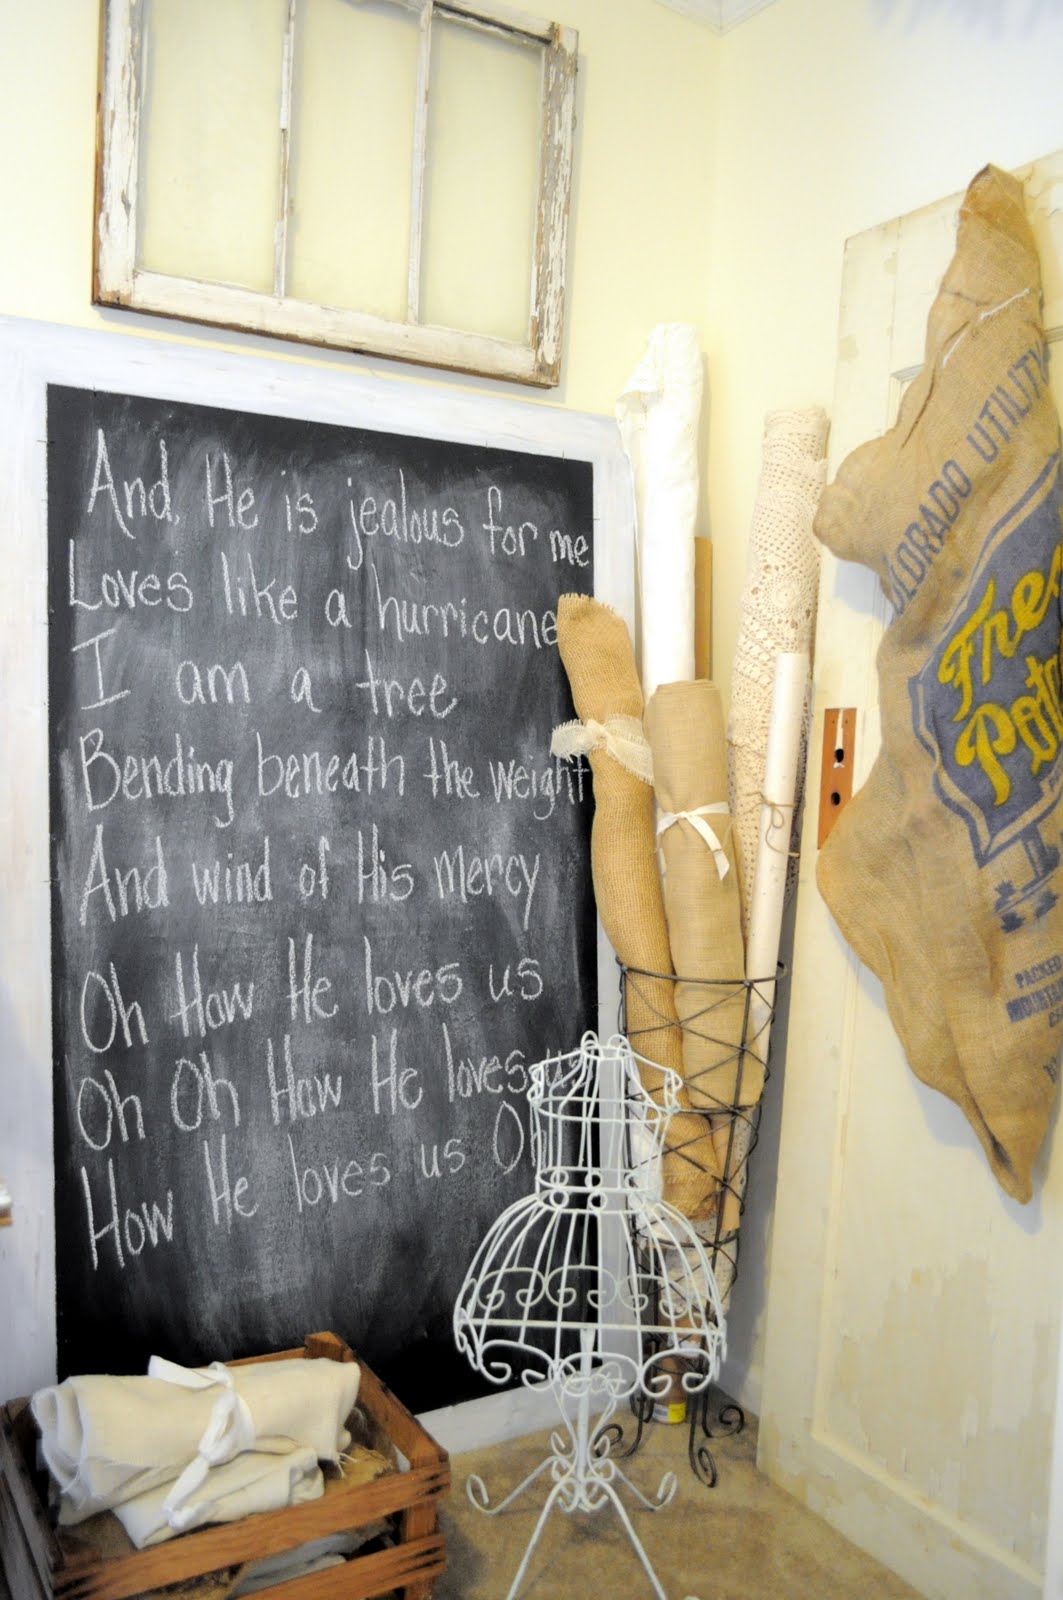 And, He is jealous for me
Loves like a hurricane
I am a tree
Bending beneath the weight
And wind of His mercy
Oh How He loves us
Oh Oh How He loves us
How He loves us Oh
COLORADO UTILITY
PACKED